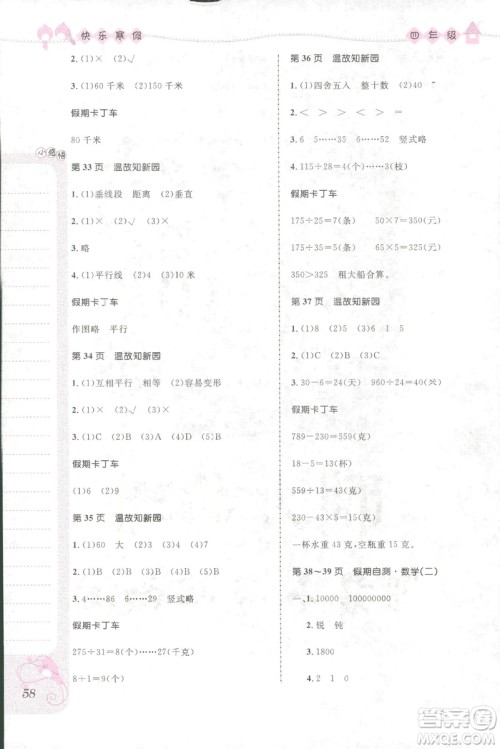 快乐寒假
四年级
2.(1)×　(2)√　(3)×
3.(1)60千米　(2)85千米
假期卡丁车
80千米
小绝招
第33页　温故知新园
1.(1)垂线段　距离　(2)平行
2.(1)×　(2)×　(3)√
3.略
4.(1)平行线　(2)平行　(3)20
假期卡丁车
作图略　平行
第34页　温故知新园
1.(1)互相平行　相等　(2)容易变形
2.(1)√　(2)×　(3)×　(4)√
3.(1)C　(2)B　(3)A　(4)B　(5)B
假期卡丁车
(1)6　(2)9
第35页　温故知新园
1.(1)60　大　(2)4　(3)4
2.(1)×　(2)√　(3)×　(4)√
3. 4……86　6……52　竖式略
假期卡丁车
275÷31=8(个)……27(千克)
8÷1=8(个)　8÷2=4(个)
58
第36页　温故知新园
1.(1)四舍五入　整十数　(2)4
2.<　>　>　>
3. 6　5……35　6……52　竖式略
4. 115÷28=4(个)……3(枝)
假期卡丁车
175÷25=7(条)　50×7=350(元)
325÷25=13(个)　25×13=325(元)
350>325　租大船合算。
第37页　温故知新园
1.(1)C　(2)A　(3)D　(4)B
3. 30-6=24(天)　960÷24=40(毫升)
假期卡丁车
789-230=559(克)
18-5=13(杯)
559÷13=43(克)
230-43×5=15(克)
一杯水重43克,空瓶重15克。
第38～39页　假期自测·数学(二)
一、1. 10000　100000000
2. 锐　钝
3. 1800
4. 2　1　0